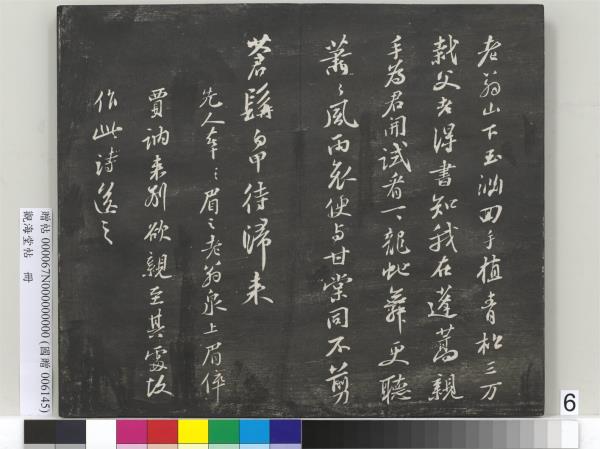 老翁山下玉淵回手植青松三万
栽父老得書知我在蓬蒿親
手為君開試看一一龍蛇舞更聽
蕭々風雨哀便与甘棠同不剪
蒼髯白甲待歸来
先人葬於眉之老翁泉上眉倅
賈訥来別欲親至其處故
作此詩送之
贈帖 000067N000000000 (國贈 006145)
觀海堂帖 冊
6